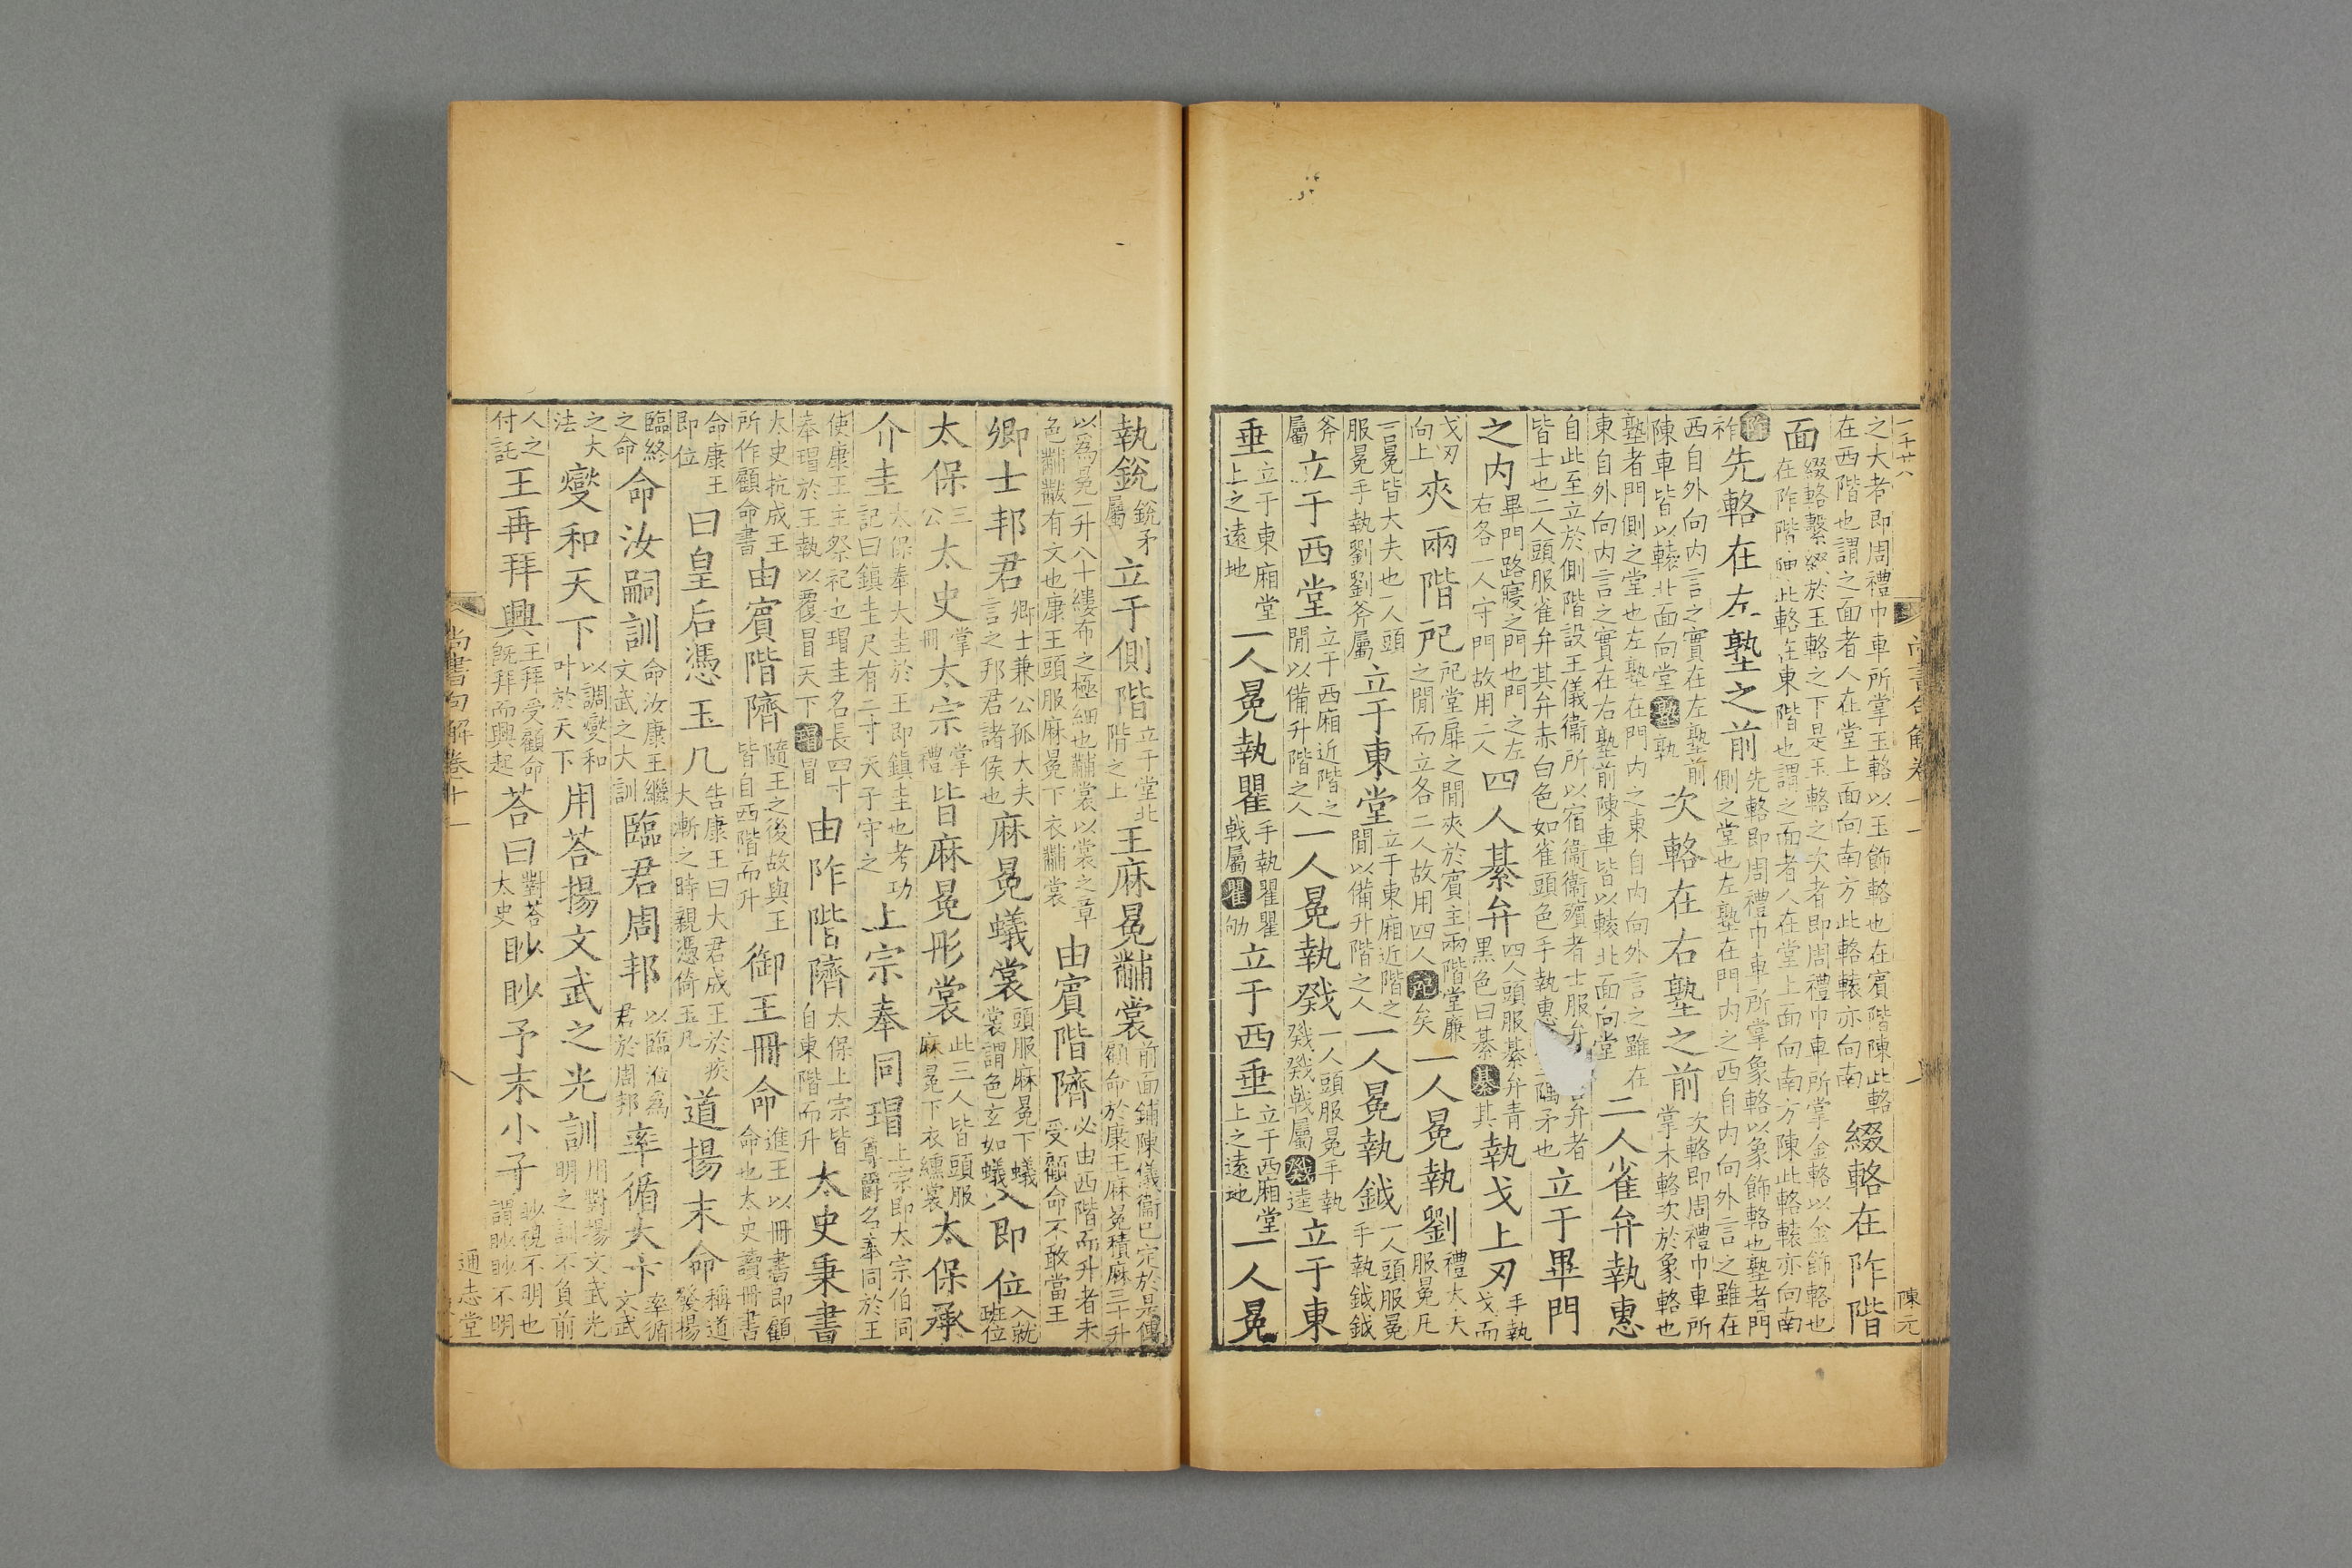 一千廿八
尚書句解卷十一
陳元
之大者即周禮巾車所掌玉輅以玉飾輅也在賓階陳此輅
在西階也謂之面者人在堂上面向南方此輅轅亦向南
綴輅在阼階
面
綴輅繫綴於玉輅之下是玉輅之次者即周禮巾車所掌金輅以金飾輅也
在阼階陳此輅在東階也謂之面者人在堂上面向南方陳此輅轅亦向南
阼
祚
先輅在左塾之前
先輅即周禮巾車所掌象輅以象飾輅也塾者門
側之堂也左塾在門内之西自内向外言之雖在
西自外向内言之實在左塾前
陳車皆以轅北面向堂
塾
孰
次輅在右塾之前
次輅即周禮巾車所
掌木輅次於象輅也
塾者門側之堂也左塾在門内之東自内向外言之雖在
東自外向内言之實在右塾前陳車皆以轅北面向堂
二人雀弁執惠
自此至立於側階設王儀衞所以宿衞衞殯者士服弁
弁者
皆士也二人頭服雀弁其弁赤白色如雀頭色手執惠
隅矛也
立于畢門
之内
畢門路寢之門也門之左
右各一人守門故用二人
四人綦弁
四人頭服綦弁青
黑色曰綦
綦
其
執戈上刃
手執
戈而
戈刃
向上
夾兩階戺
戺堂廉之間夾於賓主兩階堂廉
之間而立各二人故用四人
戺
矣
一人冕執劉
禮大夫
服冕凡
言冕皆大夫也一人頭
服冕手執劉劉斧屬
立于東堂
立于東廂近階之
間以備升階之人
一人冕執鉞
一人頭服冕
手執鉞鉞
斧
屬
立于西堂
立于西廂近階之
間以備升階之人
一人冕執戣
一人頭服冕手執
戣戣戟屬
戣
逵
立于東
垂
立于東廂堂
上之遠地
一人冕執瞿
手執瞿瞿
戟屬
瞿
劬
立于西垂
立于西廂堂
上之遠地
一人冕
執銳
銳矛
屬
立于側階
立于堂北
階之上
王麻冕黼裳
前面鋪陳儀衞已定於是傳
顧命於康王麻冕積麻三十升
以爲冕一升八十縷布之極細也黼裳以裳之章
色黼黻有文也康王頭服麻冕下衣黼裳
由賓階隮
必由西階而升者未
受顧命不敢當王
卿士邦君
卿士兼公孤大夫
言之邦君諸侯也
麻冕蟻裳
頭服麻冕下蟻
裳謂色玄如蟻
入即位
入就
班位
太保
三
公
太史
掌
冊
太宗
掌
禮
皆麻冕彤裳
此三人皆頭服
麻冕下衣纁裳
太保承
介圭
太保奉大圭於王即鎮圭也考功
記曰鎮圭尺有二寸天子守之
上宗奉同瑁
上宗即太宗伯同
尊爵名奉同於王
使康王主祭祀也瑁圭名長四寸
奉瑁於王執以覆冒天下
瑁
冒
由阼階隮
太保上宗皆
自東階而升
太史秉書
太史抗成王
所作顧命書
由賓階隮
隨王之後故與王
皆自西階而升
御王冊命
進王以冊書即顧
命也太史讀冊書
命康王
即位
曰皇后憑玉几
告康王曰大君成王於疾
大漸之時親憑倚玉几
道揚末命
稱道
發揚
臨終
之命
命汝嗣訓
命汝康王繼
文武之大訓
臨君周邦
以臨涖爲
君於周邦
率循大卞
率循
文武
之大
法
燮和天下
以調燮和
叶於天下
用荅揚文武之光訓
用對揚文武光
明之訓不負前
人之
付託
王再拜興
王拜受顧命
既拜而興起
荅曰
對荅
太史
眇眇予末小子
眇視不明也
謂眇眇不明
尚書句解卷十一
八
通志堂